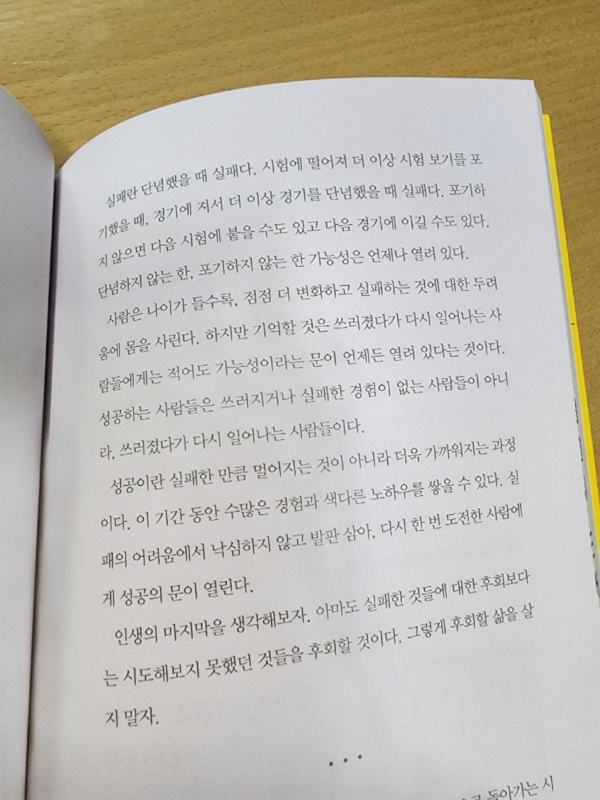 실패란 단념했을 때 실패다. 시험에 떨어져 더 이상 시험 보기를 포
기했을 때, 경기에 져서 더 이상 경기를 단념했을 때 실패다. 포기하
지 않으면 다음 시험에 붙을 수도 있고 다음 경기에 이길 수도 있다.
단념하지 않는 한, 포기하지 않는 한 가능성은 언제나 열려 있다.
사람은 나이가 들수록, 점점 더 변화하고 실패하는 것에 대한 두려
움에 몸을 사린다. 하지만 기억할 것은 쓰러졌다가 다시 일어나는 사
람들에게는 적어도 가능성이라는 문이 언제든 열려 있다는 것이다.
성공하는 사람들은 쓰러지거나 실패한 경험이 없는 사람들이 아니
라, 쓰러졌다가 다시 일어나는 사람들이다.
성공이란 실패한 만큼 멀어지는 것이 아니라 더욱 가까워지는 과정
이다. 이 기간 동안 수많은 경험과 색다른 노하우를 쌓을 수 있다. 실
패의 어려움에서 낙심하지 않고 발판 삼아, 다시 한 번 도전한 사람에
게 성공의 문이 열린다.
인생의 마지막을 생각해보자. 아마도 실패한 것들에 대한 후회보다
는 시도해보지 못했던 것들을 후회할 것이다. 그렇게 후회할 삶을 살
지 말자.
• • •
돌아가는 시